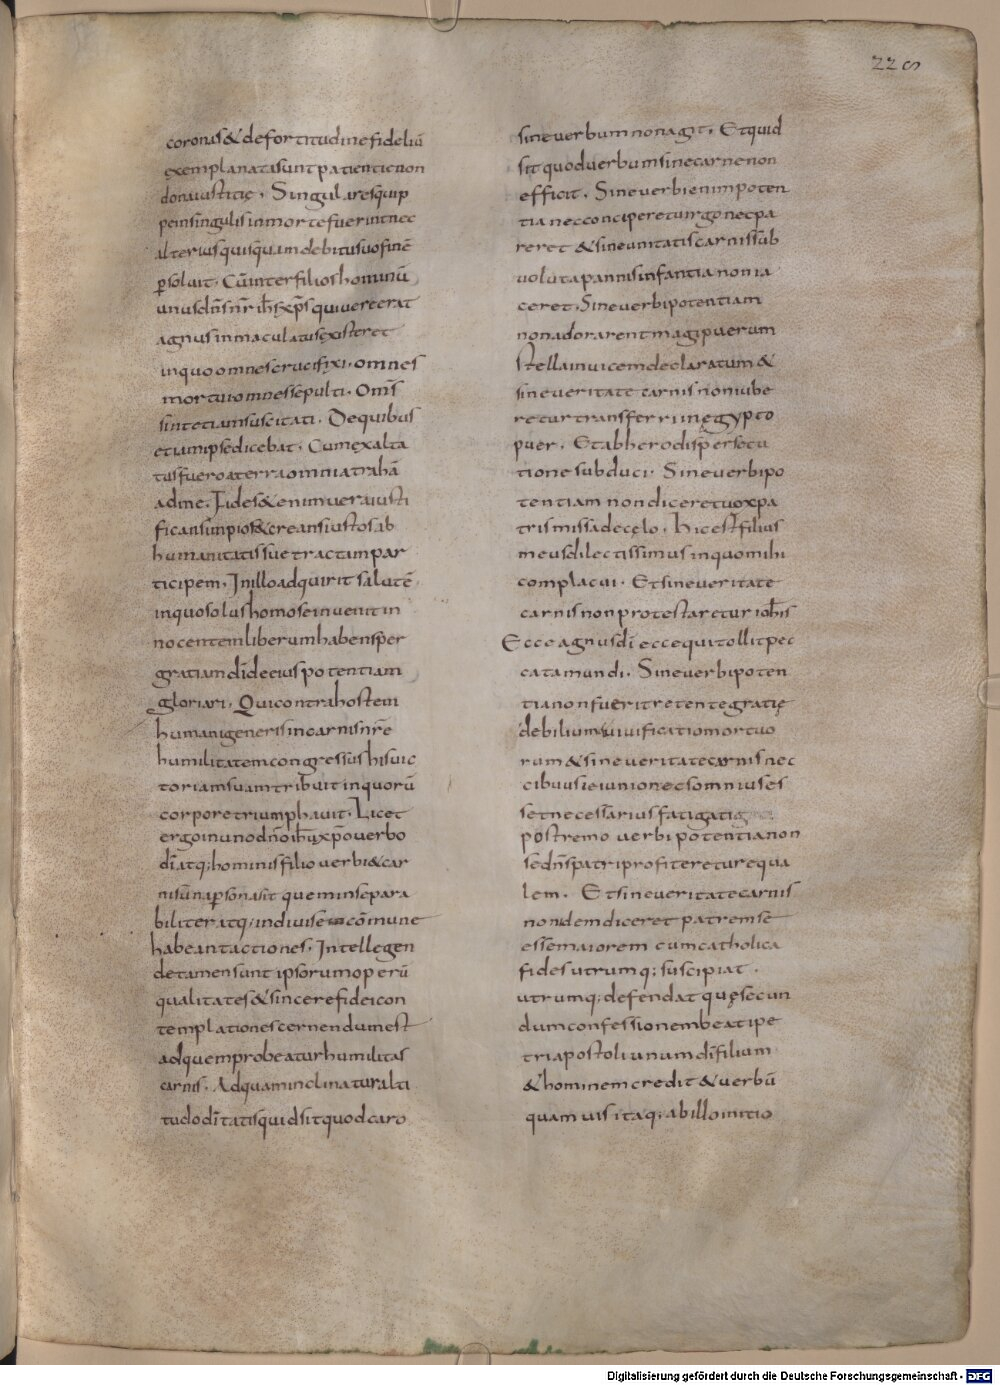 228
coronas & de fortitudine fideliū
exemplanatasunt patientię non
dona iustitię. Singulares quip
pe in singulis in morte fuerint nec
alterius quisquam debitu suo finē
p̲soluit. Cū inter filios hominū
unus dn̄s nr̄ ih̄s xp̄s qui uere erat
agnus inmaculatus existeret
in quo omnes crucifixi. omnes
mortui omnes sepulti. Om̄s
sint etiam suscitati. De quibus
etiam ipse dicebat. Cum exalta
tus fuero a terra omnia trahā
ad me. Fides & enim uera iusti
ficans impios & creans iustos ab
humanitatis suę tractam par
ticipem. In illo adquirit salutē
in quo solus homo se inuenit in
nocentem liberum habens per
gratiam dī de eius potentiam
gloriari. Qui contra hostem
humani generis in carnis nr̄e
humilitatem congressus his uic
toriam suam tribuit in quorū
corpore triumphauit. Licet
ergo in uno dn̄o ih̄u xp̄o uerbo
dī atq; hominis filio uerbi & car
nis ūna p̲sona sit que minsepara
biliter atq; indiuise cōmune
habeant actiones. Intellegen
dę tamen sunt ipsorum operū
qualitates & sincere fidei con
templationes cernendum est
ad quem probeatur humilitas
carnis. Ad quam inclinatur alti
tudo dītatis quid sit quod caro
sine uerbum non agit. Et quid
sit quod uerbum sine carne non
efficit. Sine uerbi enim poten
tia nec conciperet uirgo nec pa
reret & sine unitatis carnis sub
uoluta pannis infantia non ia
ceret. Sine uerbi potentiam
non adorarent magi puerum
stella in uicem declaratum &
sine ueritate carnis non iube
retur transferri in ęgypto
puer. Et ab herodis persecu
tione subduci. Sine uerbi po
tentiam non diceret uox pa
tris missa de cęlo. hic est filius
meus dilectissimus in quo mihi
complacui. Et sine ueritate
carnis non protestaretur ioh̄is
Ecce agnus dī ecce qui tollit pec
cata mundi. Sine uerbi poten
tia non fuerit retente gratię
debilium uiuificatio mortuo
rum & sine ueritate carnis nec
cibuus ieiunio nec somniuses
set necessarius fatigatig
postremo uerbi potentia non
se dn̄s patri profiteretur equa
lem. Et sine ueritate carnis
non idem diceret patrem sē
esse maiorem cum catholica
fides utrumq; suscipiat.
utrumq; defendat quę secun
dum confessionem beati pe
tri apostoli unum dī filium
& hominem credit & uerbū
quam uis itaq; ab illo initio
Digitalisierung gefördert durch die Deutsche Forschungsgemeinschaft - DFG